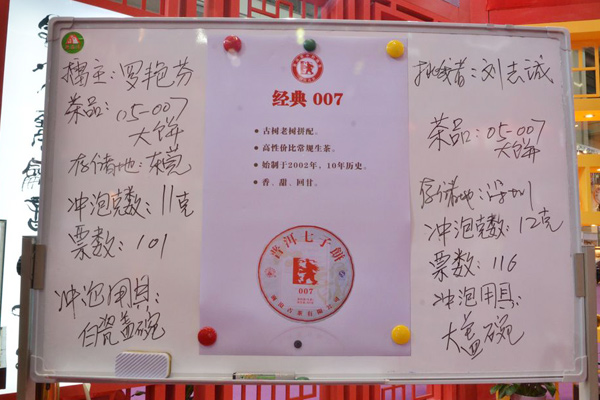 擂主：罗艳芬
茶品：05-007
大饼
存储地：东莞
冲泡克数：11克
票数：101
冲泡用具：
白瓷盖碗
经典 007
古树老树拼配。
高性价比常规生茶。
始制于2002年，10年历史。
香、甜、回甘。
普洱七子餅
007
挑战者：刘志诚
茶品：05-007
大饼
存储地：深圳
冲泡克数：12克
票数：116
冲泡用具：
大盖碗